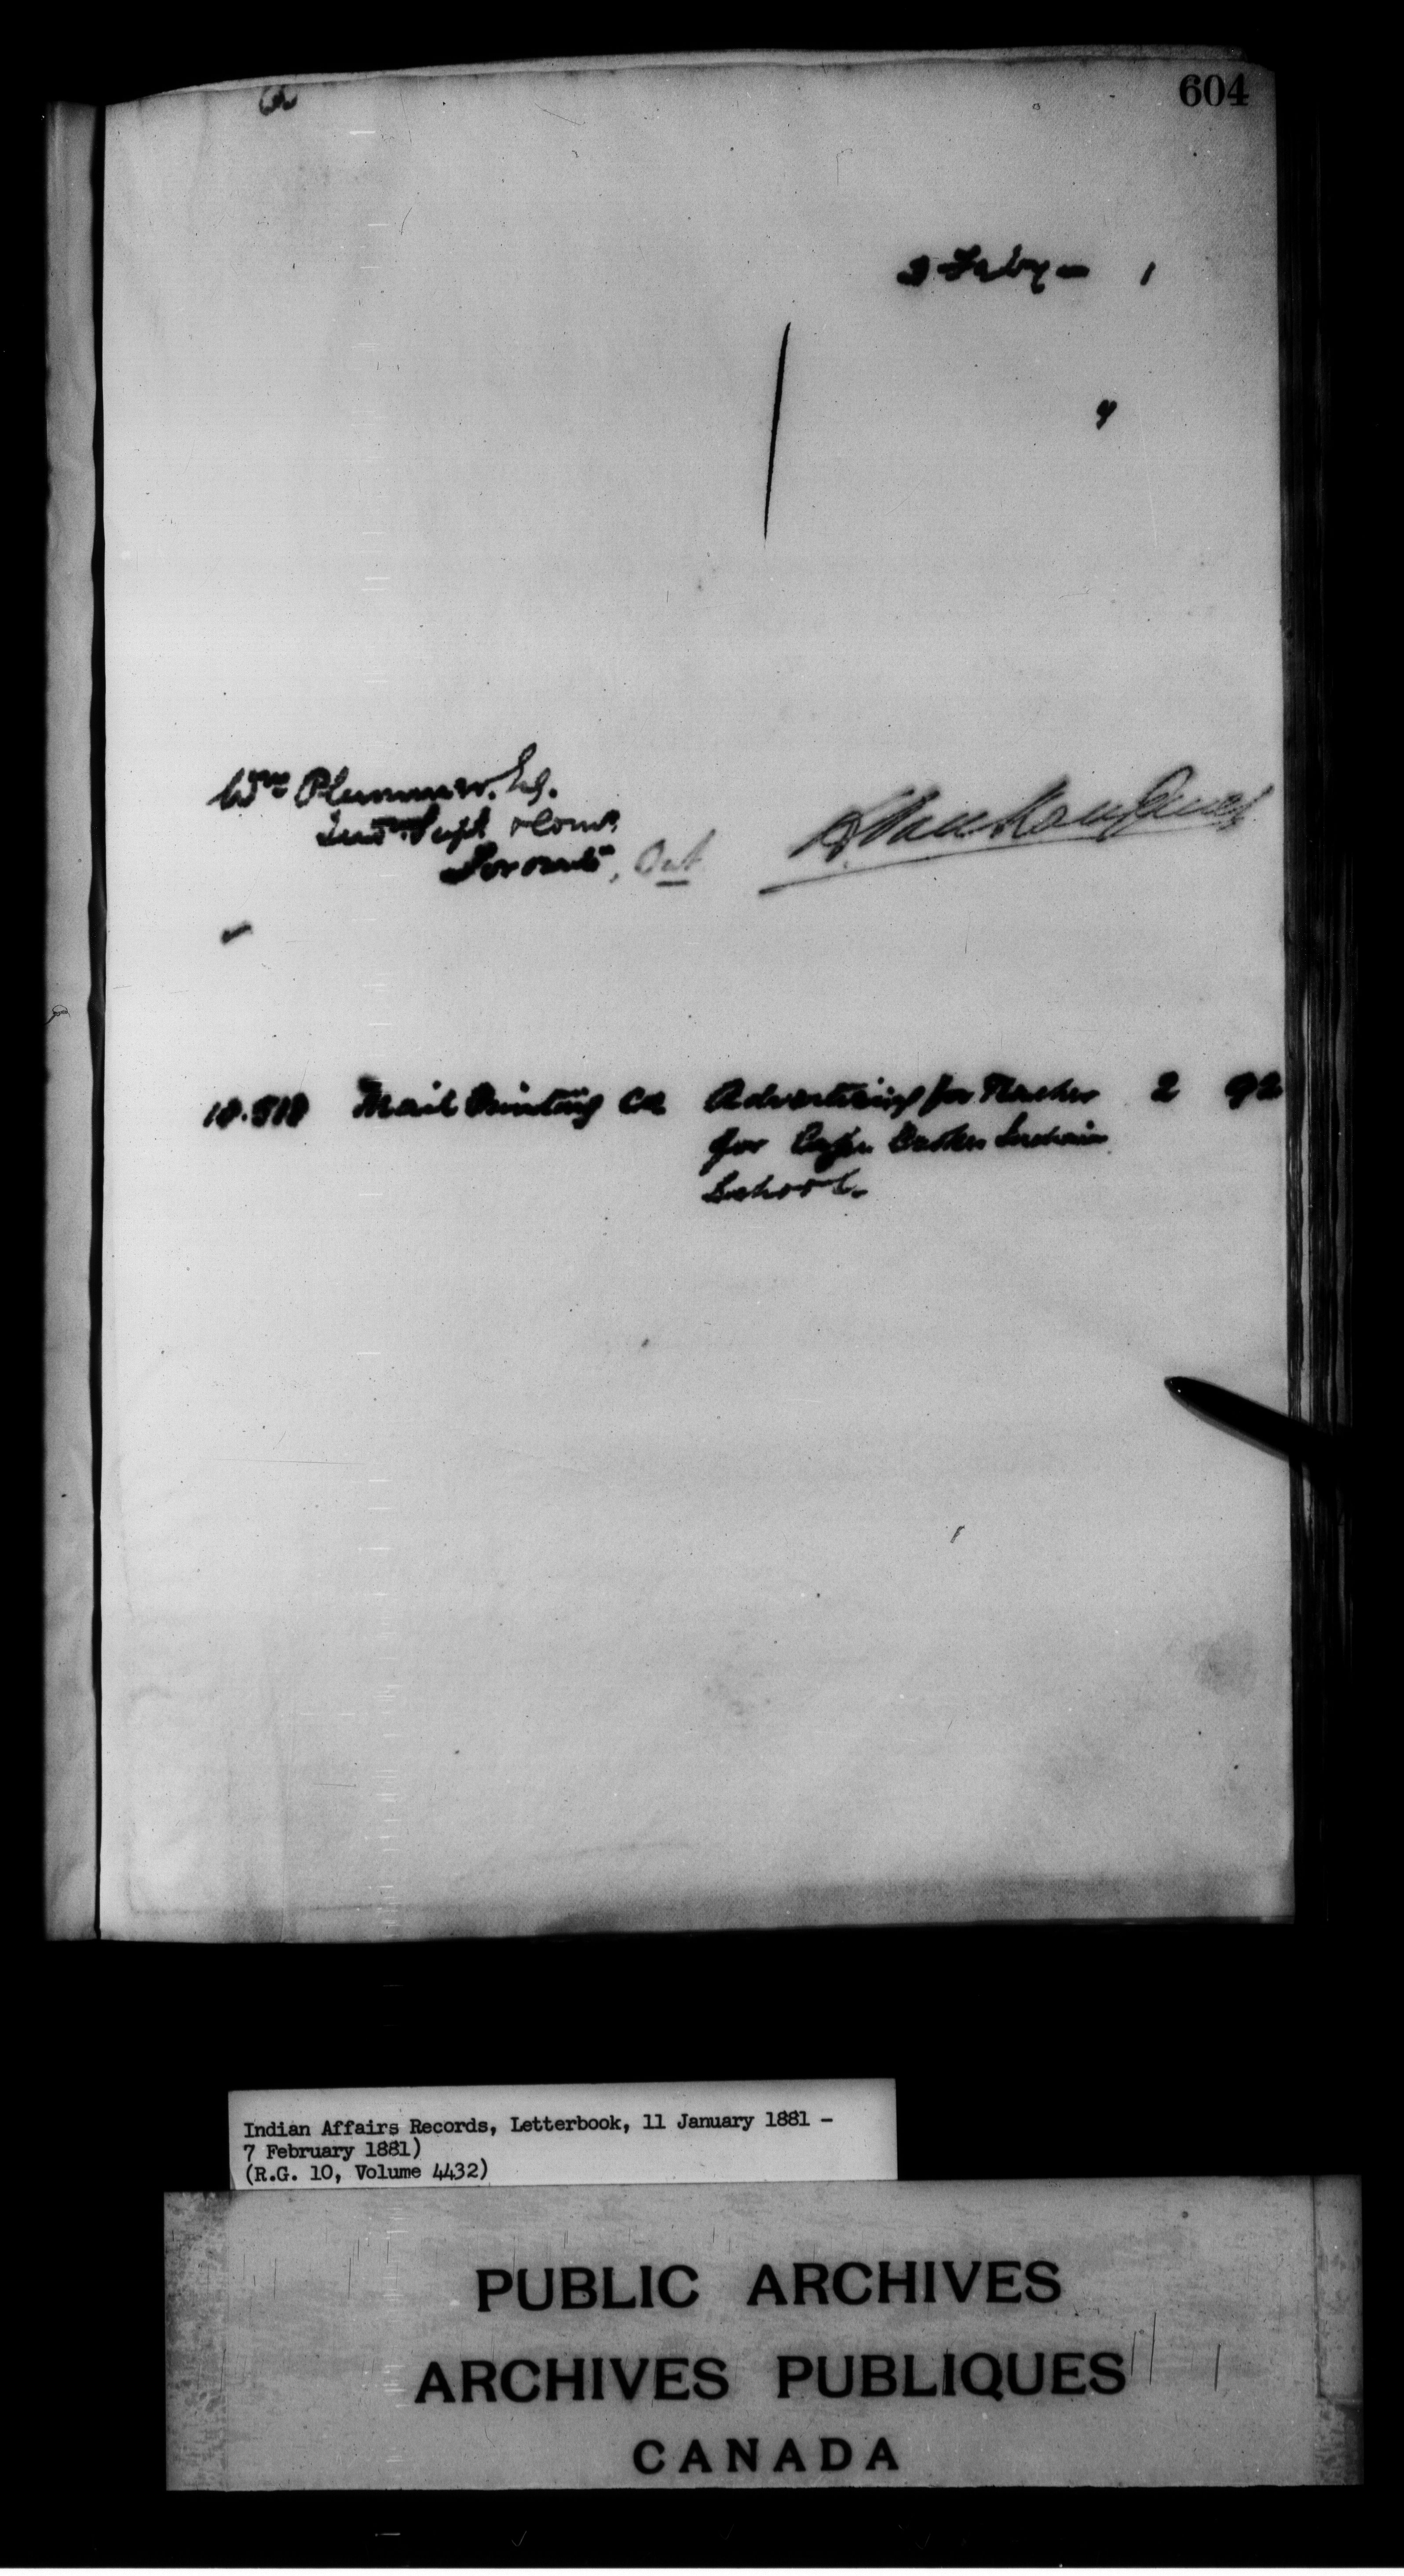 604
3 Feby - 1
4
Wm Plummer. Esq.
Ind. Supt & Comr
Toronto, Ont
L VanKoughnet
10.518 Mail Printing Co Advertising for Teacher 2 92
for Cape Croker Indian
School.
Indian Affairs Records, Letterbook, 11 January 1881 -
7 February 1881)
(R.G. 10, Volume 4432)
PUBLIC ARCHIVES
ARCHIVES PUBLIQUES
CANADA